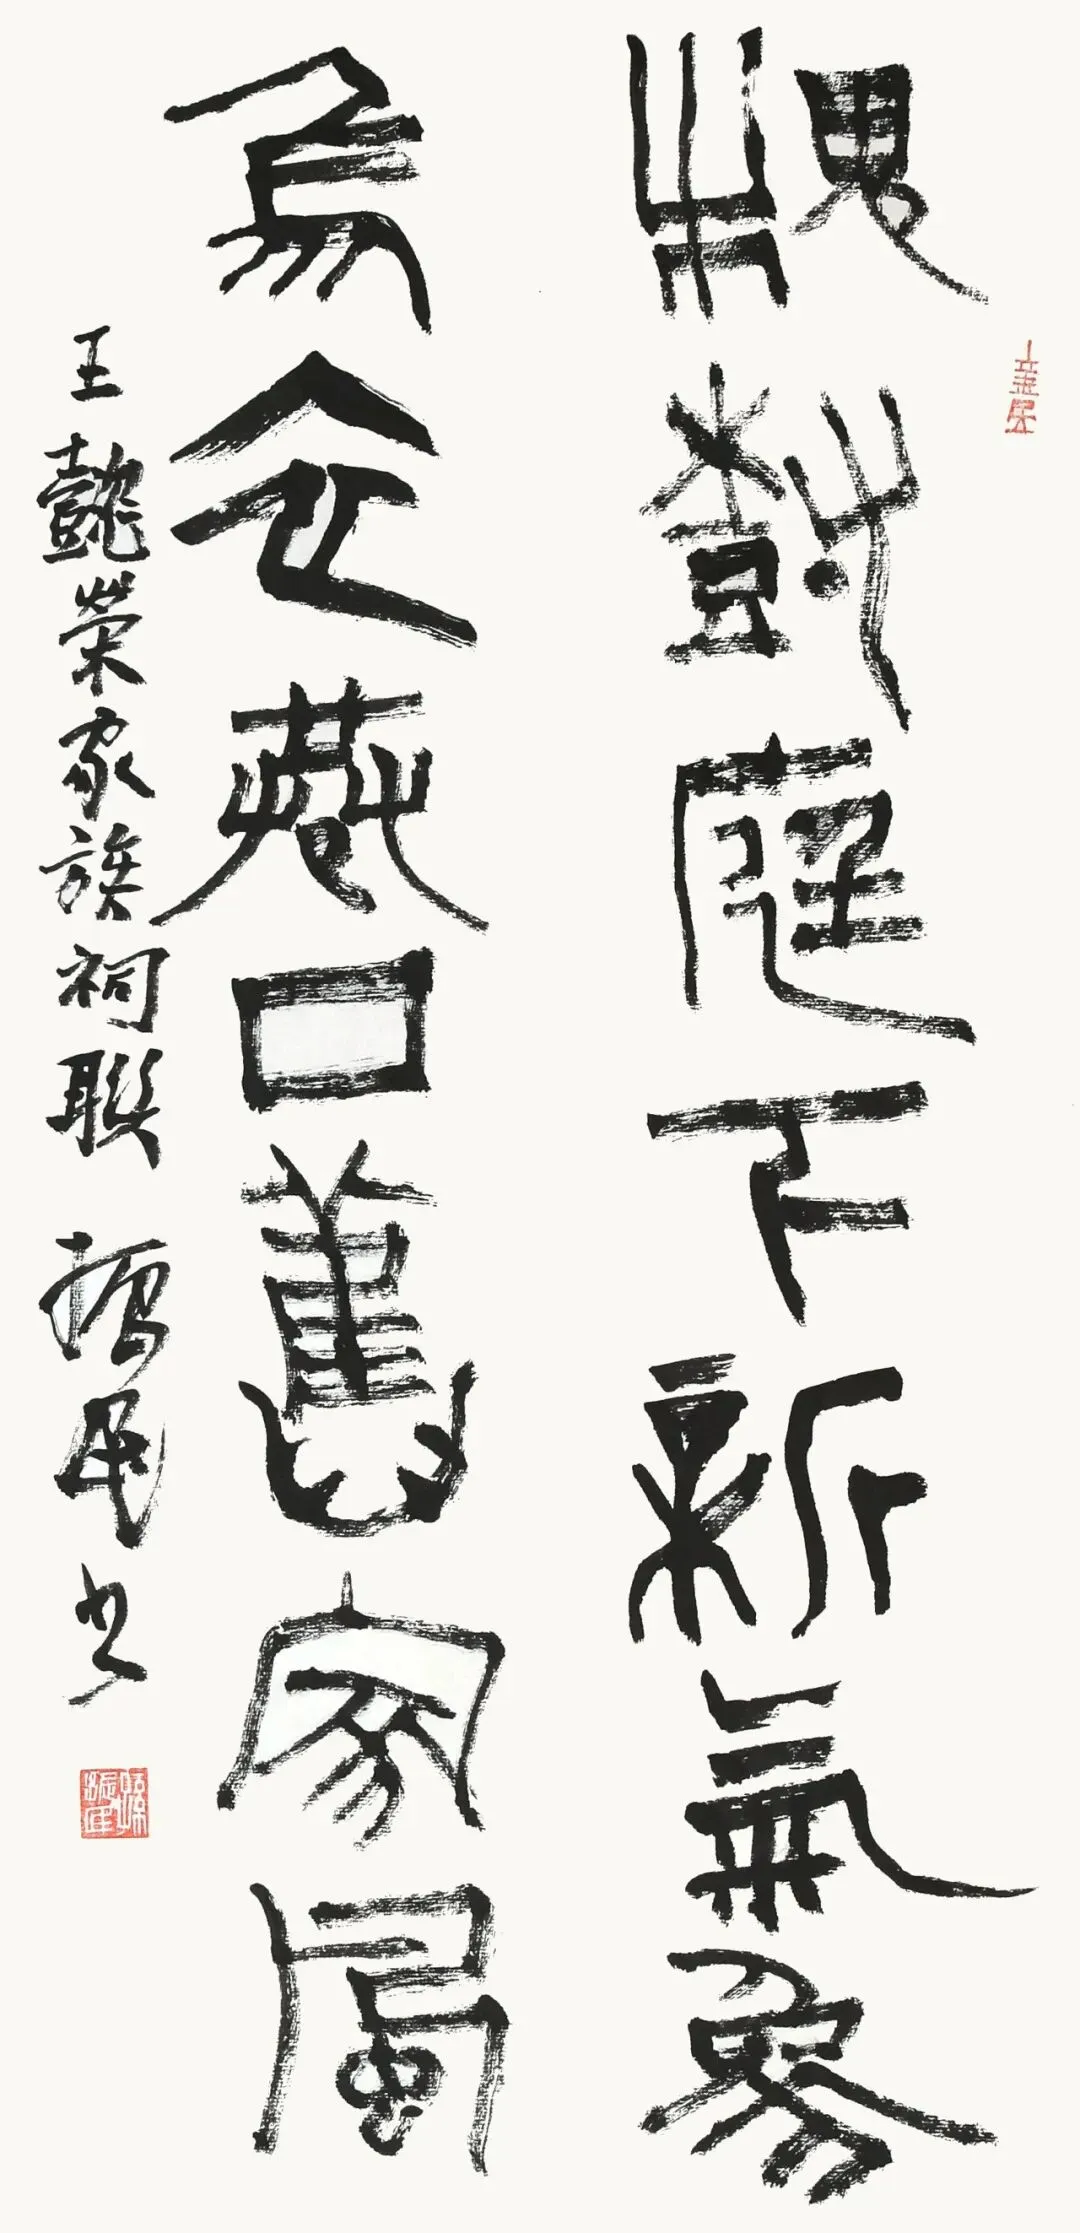 槐樹庭下新氣象
烏衣巷口舊家風
王懿榮家族祠聯 振民书